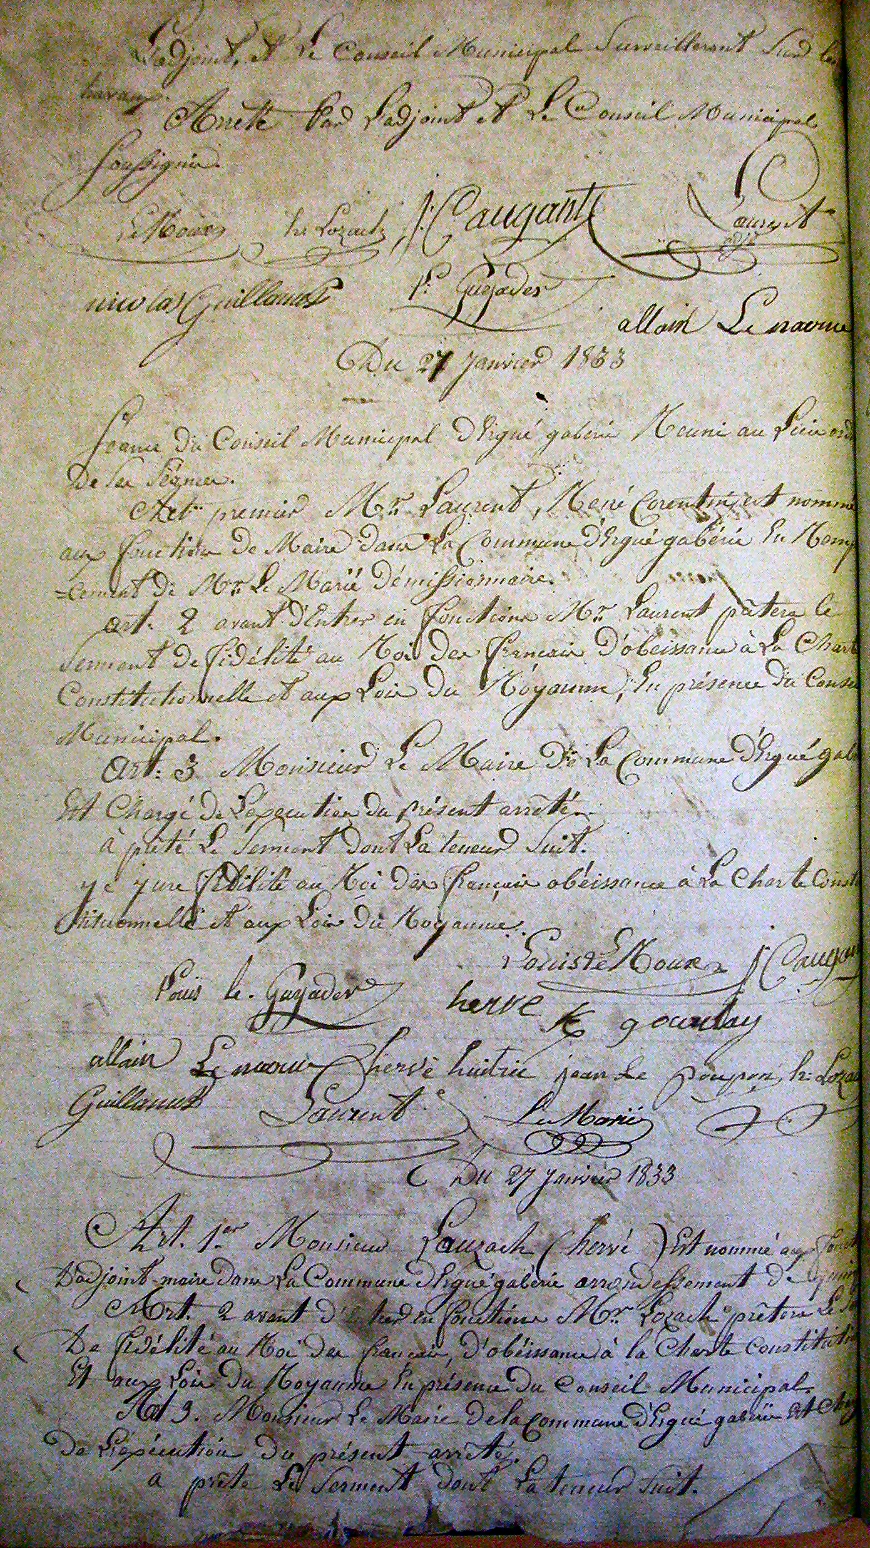 L'adjoint, et Le Conseil Municipal Surveilleront Sur les
travaux.
Arrêté Par L'adjoint et Le Conseil Municipal
Soussignée.
LeRoux he Lozach J. Caugant Laurent
nicolas Guillamot P. Guyader
allain Le naour
Du 27 Janvier 1833
Séance du Conseil Municipal d'Ergué gabéric Réuni au Lieu ord
De Ses Séances.
Art. premier Mr. Laurent, René Corentin, est nommé
aux fonction de Maire dans La Commune d'Ergué gabéric En Remp
=cement de Mr. Le Marié démissionnaire.
art. 2 avant d'Entrer en fonctions Mr. Laurent prêtera le
Serment de fidélité au Roi des francais d'obeissance à La Chart
Constitutionnelle et aux Lois du Royaume, En présence du Conseil
Municipal.
art. 3 Monsieur Le Maire de La Commune d'Ergué gab
Est Chargé de L'éxecution du présent arrêté.
à prêté Le Serment dont La teneur Suit.
je jure fidélité au Roi des français obéissance à La Charte Const
titutionnelle et aux Lois du Royaume.
Louis Le Roux J. Caugan
Louis le Guyader herve gourlay
allain Le naour hervé huitric jean Le poupon, h. Loza
Guillamot Laurent Le Marié
Du 27 janvier 1833
Art. 1.er Monsieur Lauzach (hervé) Est nommé aux fonct
D'adjoint-maire dans La Commune d'Ergué gabéric arrondissement de quim
Art. 2 avant d'Entrer en fonctions Mr. Lozach prêtera Le
De fidélité au Roi des français, d'obéissance à la Charte Constituti
Et aux Lois du Royaume En présence du Conseil Municipal.
Art 3. Monsieur Le Maire de la Commune d'Ergué gabéric est Charg
De L'éxécution du présent arrêté.
a prêté Le Serment dont La teneur Suit.